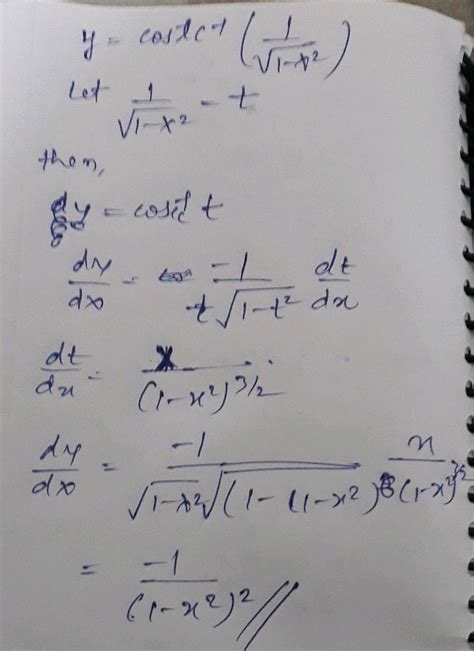 y = cosec⁻¹ (1/√(1-x²))
Let 1/√(1-x²) = t
then,
dy = cosec⁻¹ t
dy/dx = -1/(t√(1-t²)) dt/dx
dt/dx = x/(1-x²)^(3/2)
dy/dx = -1/(√(1-x²) √(1-(1-x²))) x/(1-x²)^(3/2)
= -1/(1-x²)² //